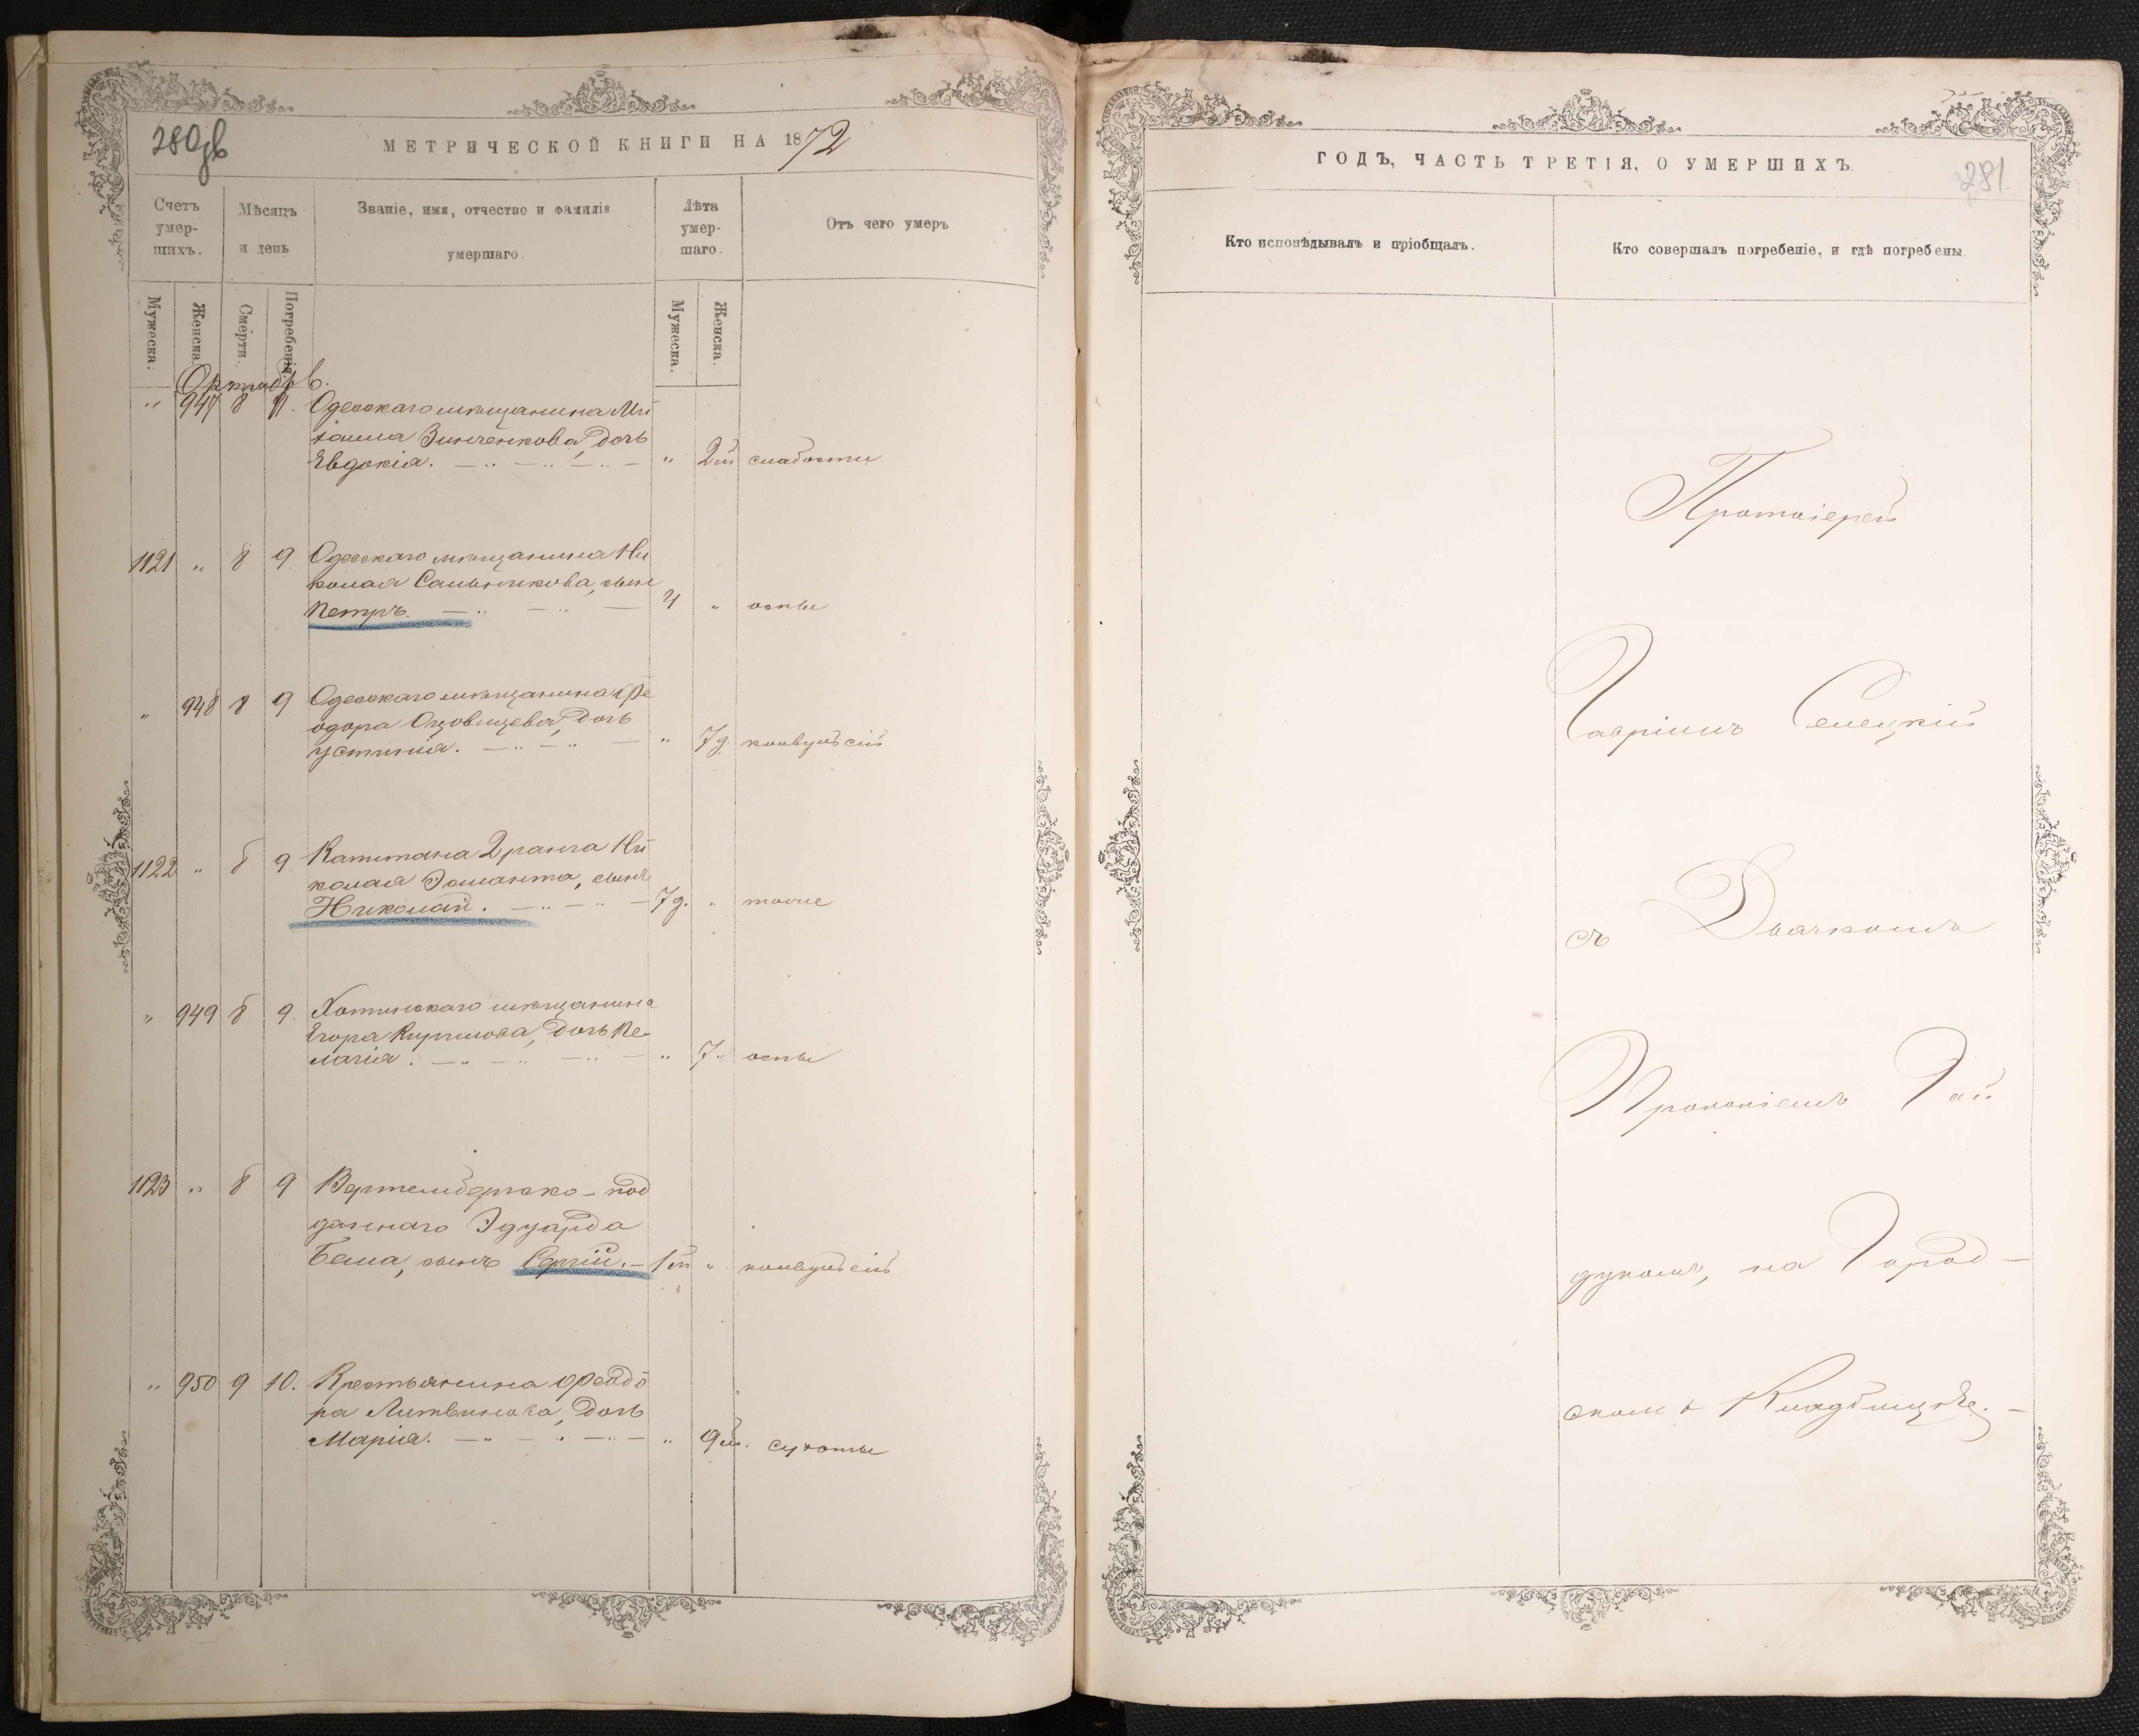 280зв
МЕТРИЧЕСКОЙ КНИГИ НА 1872
Счетъ умер-шихъ.
Мѣсяцъ и день
Званіе, имя, отчество и фамилія умершаго.
Лѣта умер-шаго.
Отъ чего умеръ
Мужеска.
Женска.
Смерти.
Погребенія.
Мужеска.
Женска.
Октябрь.
" 947 8 Одесскаго мѣщанина Ми
хаила Зинченкова, дочь
Евдокія. " 2м слабости
1121 " 8 9 Одесскаго мѣщанина Ни
колая Сальникова, сынъ
Петръ. 4 " оспы
" 948 8 9 Одесскаго мѣщанина Ѳе
одора дочь
Устинія. " 7д. конвульсій
1122 " 8 9 Капитана 2 ранга Ни
колая сынъ
Николай. 7д. " тоже
" 949 8 9. Хотинскаго мѣщанина
Егора Кирилова, дочь Пе-
лагія. " 7. оспы
1123 " 8 9 Вертембергско-под
даннаго Эдуарда
Бема, сынъ Сергій. 1м " конвульсій
" 950 9 10. Крестьянина Ѳеодо
ра Литвинова, дочь
Марія. " 9м. сухоты
ГОДЪ, ЧАСТЬ ТРЕТІЯ, О УМЕРШИХЪ.
281
Кто исповѣдывалъ и пріобщалъ.
Кто совершалъ погребеніе, и гдѣ погребены.
Протоіерей
Гавріилъ Селецкій
съ Дьячкомъ
Прокопіемъ Гай
дукомъ, на Город-
скомъ Кладбищѣ.